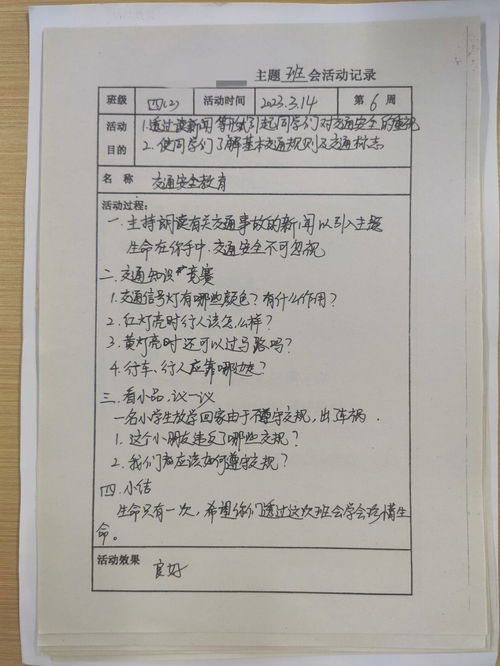 主题 班 会活动记录
班级 四(2) 活动时间 2023.3.14 第 6 周
活动目的
1.透过读新闻等形式引起同学们对交通安全的重视
2.使同学们了解基本交通规则及交通标志
名 称 交通安全教育
活动过程:
一.主持朗读有关交通事故的新闻以引入主题
生命在你手中,交通安全不可忽视
二.交通知识竞赛
1.交通信号灯有哪些颜色?有什么作用?
2.红灯亮时行人该怎么样?
3.黄灯亮时还可以过马路吗?
4.行车、行人应靠哪边?
三.看小品,议一议
一名小学生放学回家由于不遵守交规,出车祸.
1.这个小朋友违反了哪些交规?
2.我们都应该如何遵守交规?
四.小结
生命只有一次,希望你们透过这次班会学会珍惜生
命。
活动效果 良好